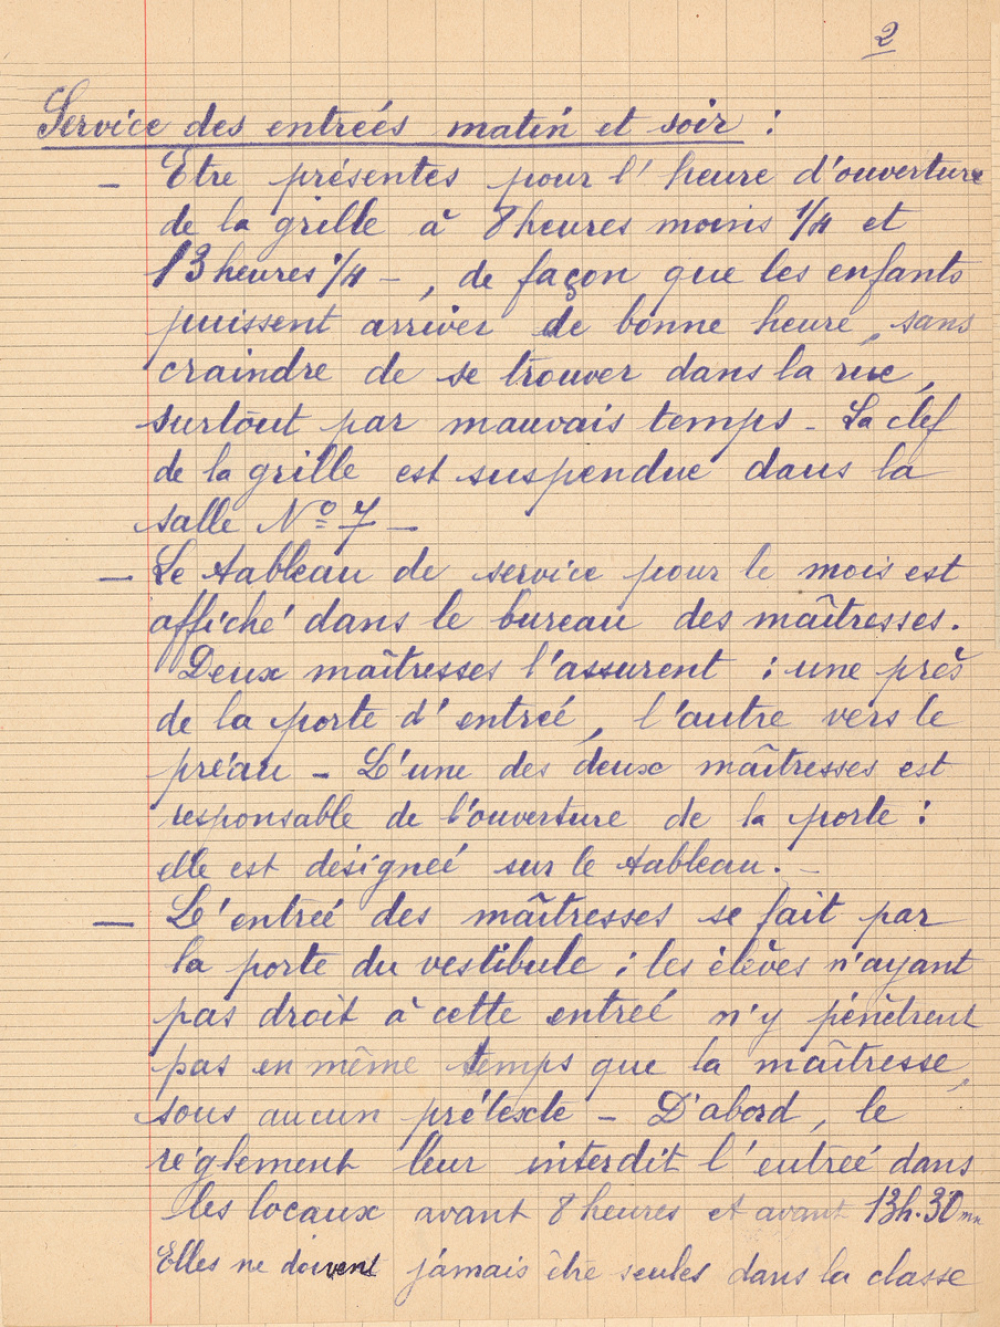 2
Service des entrées matin et soir :
– Etre présentes pour l'heure d'ouverture
de la grille à 8 heures moins 1/4 et
13 heures 1/4 – , de façon que les enfants
puissent arriver de bonne heure, sans
craindre de se trouver dans la rue,
surtout par mauvais temps – La clef
de la grille est suspendue dans la
salle Nº 7 –
– Le tableau de service pour le mois est
affiché dans le bureau des maîtresses.
Deux maîtresses l'assurent : une près
de la porte d'entrée, l'autre vers le
préau – L'une des deux maîtresses est
responsable de l'ouverture de la porte :
elle est désignée sur le tableau. –
– L'entrée des maîtresses se fait par
la porte du vestibule ; les élèves n'ayant
pas droit à cette entrée n'y pénètrent
pas en même temps que la maîtresse,
sous aucun prétexte – D'abord, le
règlement leur interdit l'entrée dans
les locaux avant 8 heures et avant 13h.30mn
Elles ne doivent jamais être seules dans la classe